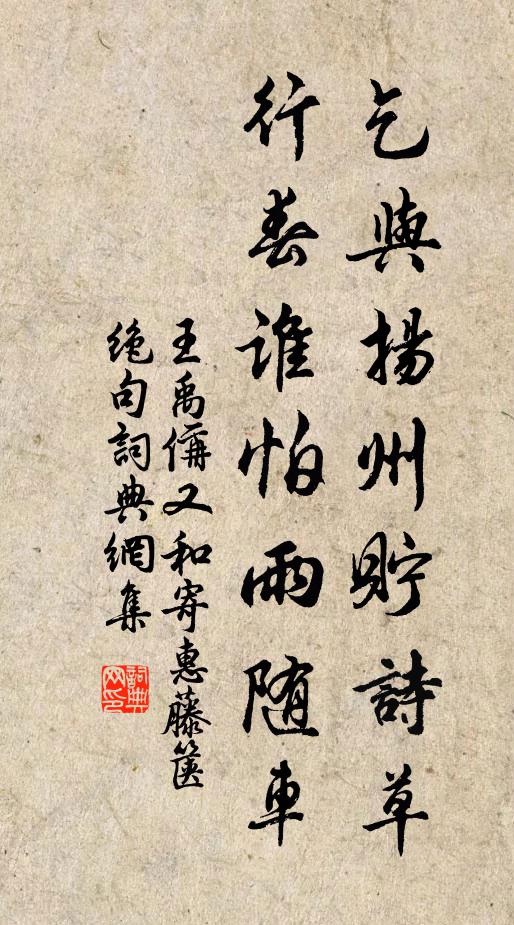 乞與揚州貯詩草
行春誰怕雨随車
王禹偁又和寄惠藤篋
絶句詞典網集
詞典網印